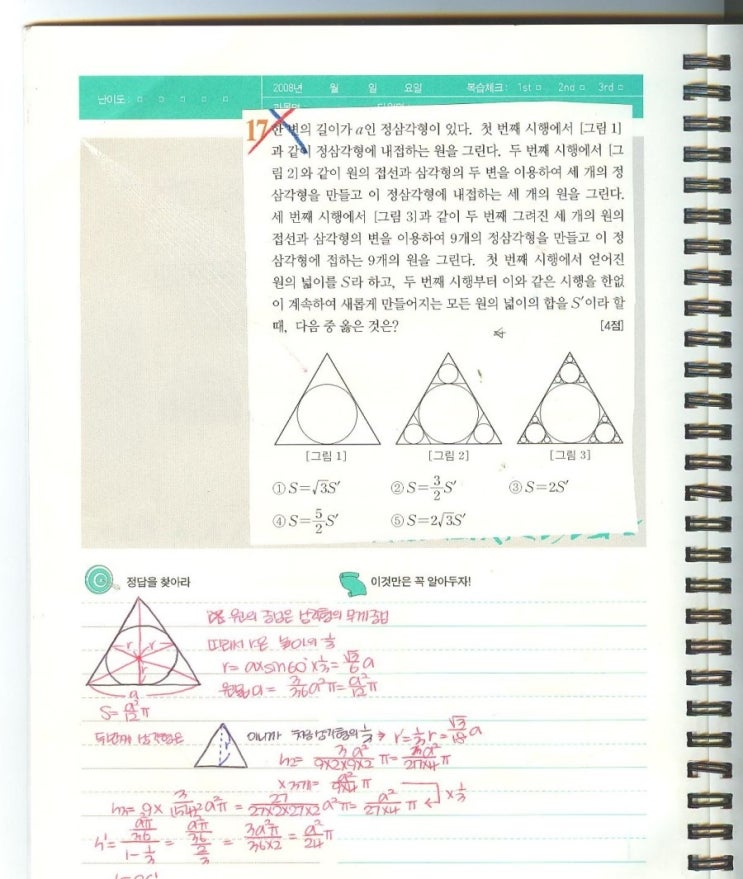 난이도 : □ □ □ □ □
2008년 월 일 요일 복습체크 : 1st □ 2nd □ 3rd □
17 한 변의 길이가 a인 정삼각형이 있다. 첫 번째 시행에서 [그림 1]
과 같이 정삼각형에 내접하는 원을 그린다. 두 번째 시행에서 [그
림 2]와 같이 원의 접선과 삼각형의 두 변을 이용하여 세 개의 정
삼각형을 만들고 이 정삼각형에 내접하는 세 개의 원을 그린다.
세 번째 시행에서 [그림 3]과 같이 두 번째 그려진 세 개의 원의
접선과 삼각형의 변을 이용하여 9개의 정삼각형을 만들고 이 정
삼각형에 접하는 9개의 원을 그린다. 첫 번째 시행에서 얻어진
원의 넓이를 S라 하고, 두 번째 시행부터 이와 같은 시행을 한없
이 계속하여 새롭게 만들어지는 모든 원의 넓이의 합을 S′이라 할
때, 다음 중 옳은 것은? [4점]
[그림 1] [그림 2] [그림 3]
① S=√3S′ ② S=3/2 S′ ③ S=2S′
④ S=5/2 S′ ⑤ S=2√3S′
정답을 찾아라 이것만은 꼭 알아두자!
원의 중심은 삼각형의 무게중심
따라서 r은 높이의 1/3
r r r
r = a×sin60°×1/3 = √3/6 a
a
= 3/36 a²π = a²/12 π
S = a²/12 π
두번째 삼각형은 r 이니까 1/3 → r′=1/3 r = √3/18 a
π = 3a²/27×4 π
×3개 = a²/9×4 π
9× π = 27/27×2×27×2 a²π = a²/27×4 π ×1/3
a²π/36 / 1-1/3 = a²π/36 / 2/3 = 3a²π/36×2 = a²/24 π